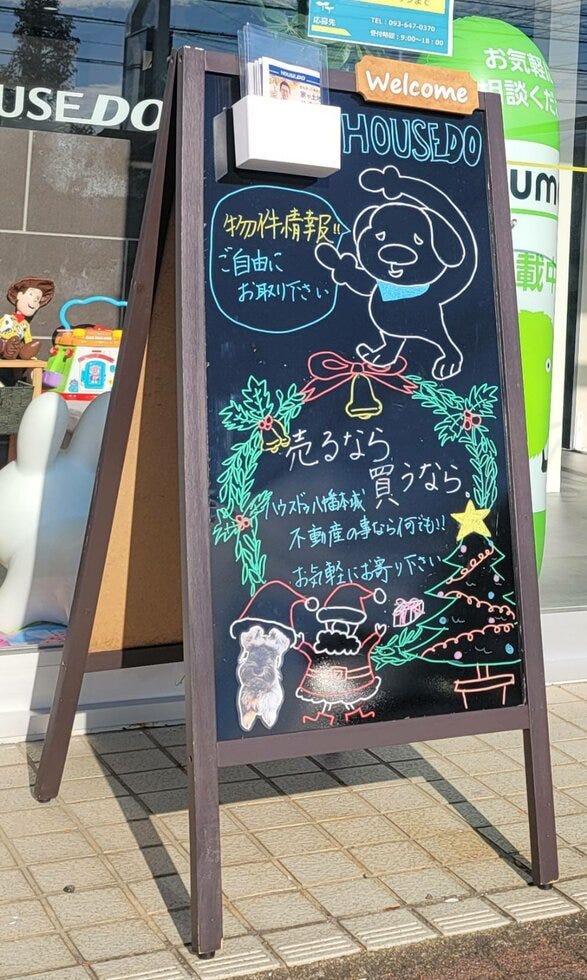 応募先
TEL：093-647-0370
受付時間：9:00～18:00
お気軽に
相談くだ
USEDO
HOUSEDO
Welcome
HOUSEDO
物件情報!!
ご自由に
お取り下さい
売るなら
買うなら。
ハウスドゥ八幡本城
不動産の事なら何でも!!
お気軽にお寄り下さい
um
載中